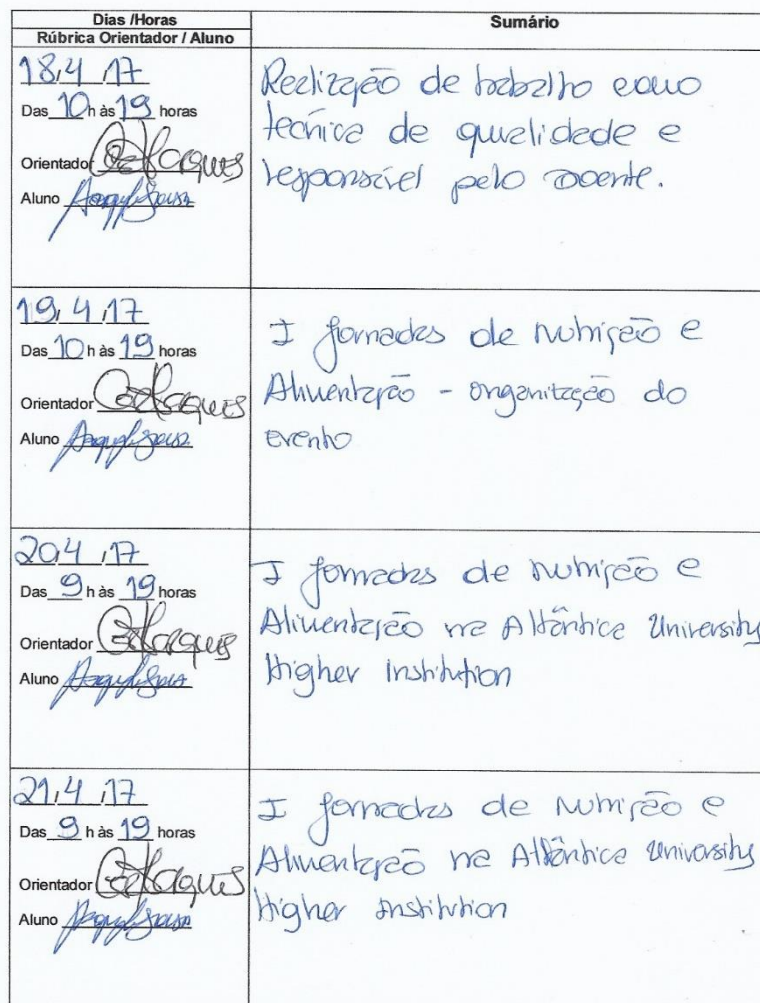 Dias /Horas
Rúbrica Orientador / Aluno
Sumário
18,4 ,17
Das 10 h às 19 horas
Orientador
Aluno
Realização de trabalho como
técnica de qualidade e
responsável pelo doente.
19, 4 ,17
Das 10 h às 19 horas
Orientador
Aluno
I Jornadas de Nutrição e
Alimentação - organização do
evento
20,4 ,17
Das 9 h às 19 horas
Orientador
Aluno
I Jornadas de Nutrição e
Alimentação na Atlântica University
Higher Institution
21,4 ,17
Das 9 h às 19 horas
Orientador
Aluno
I Jornadas de Nutrição e
Alimentação na Atlântica University
Higher Institution